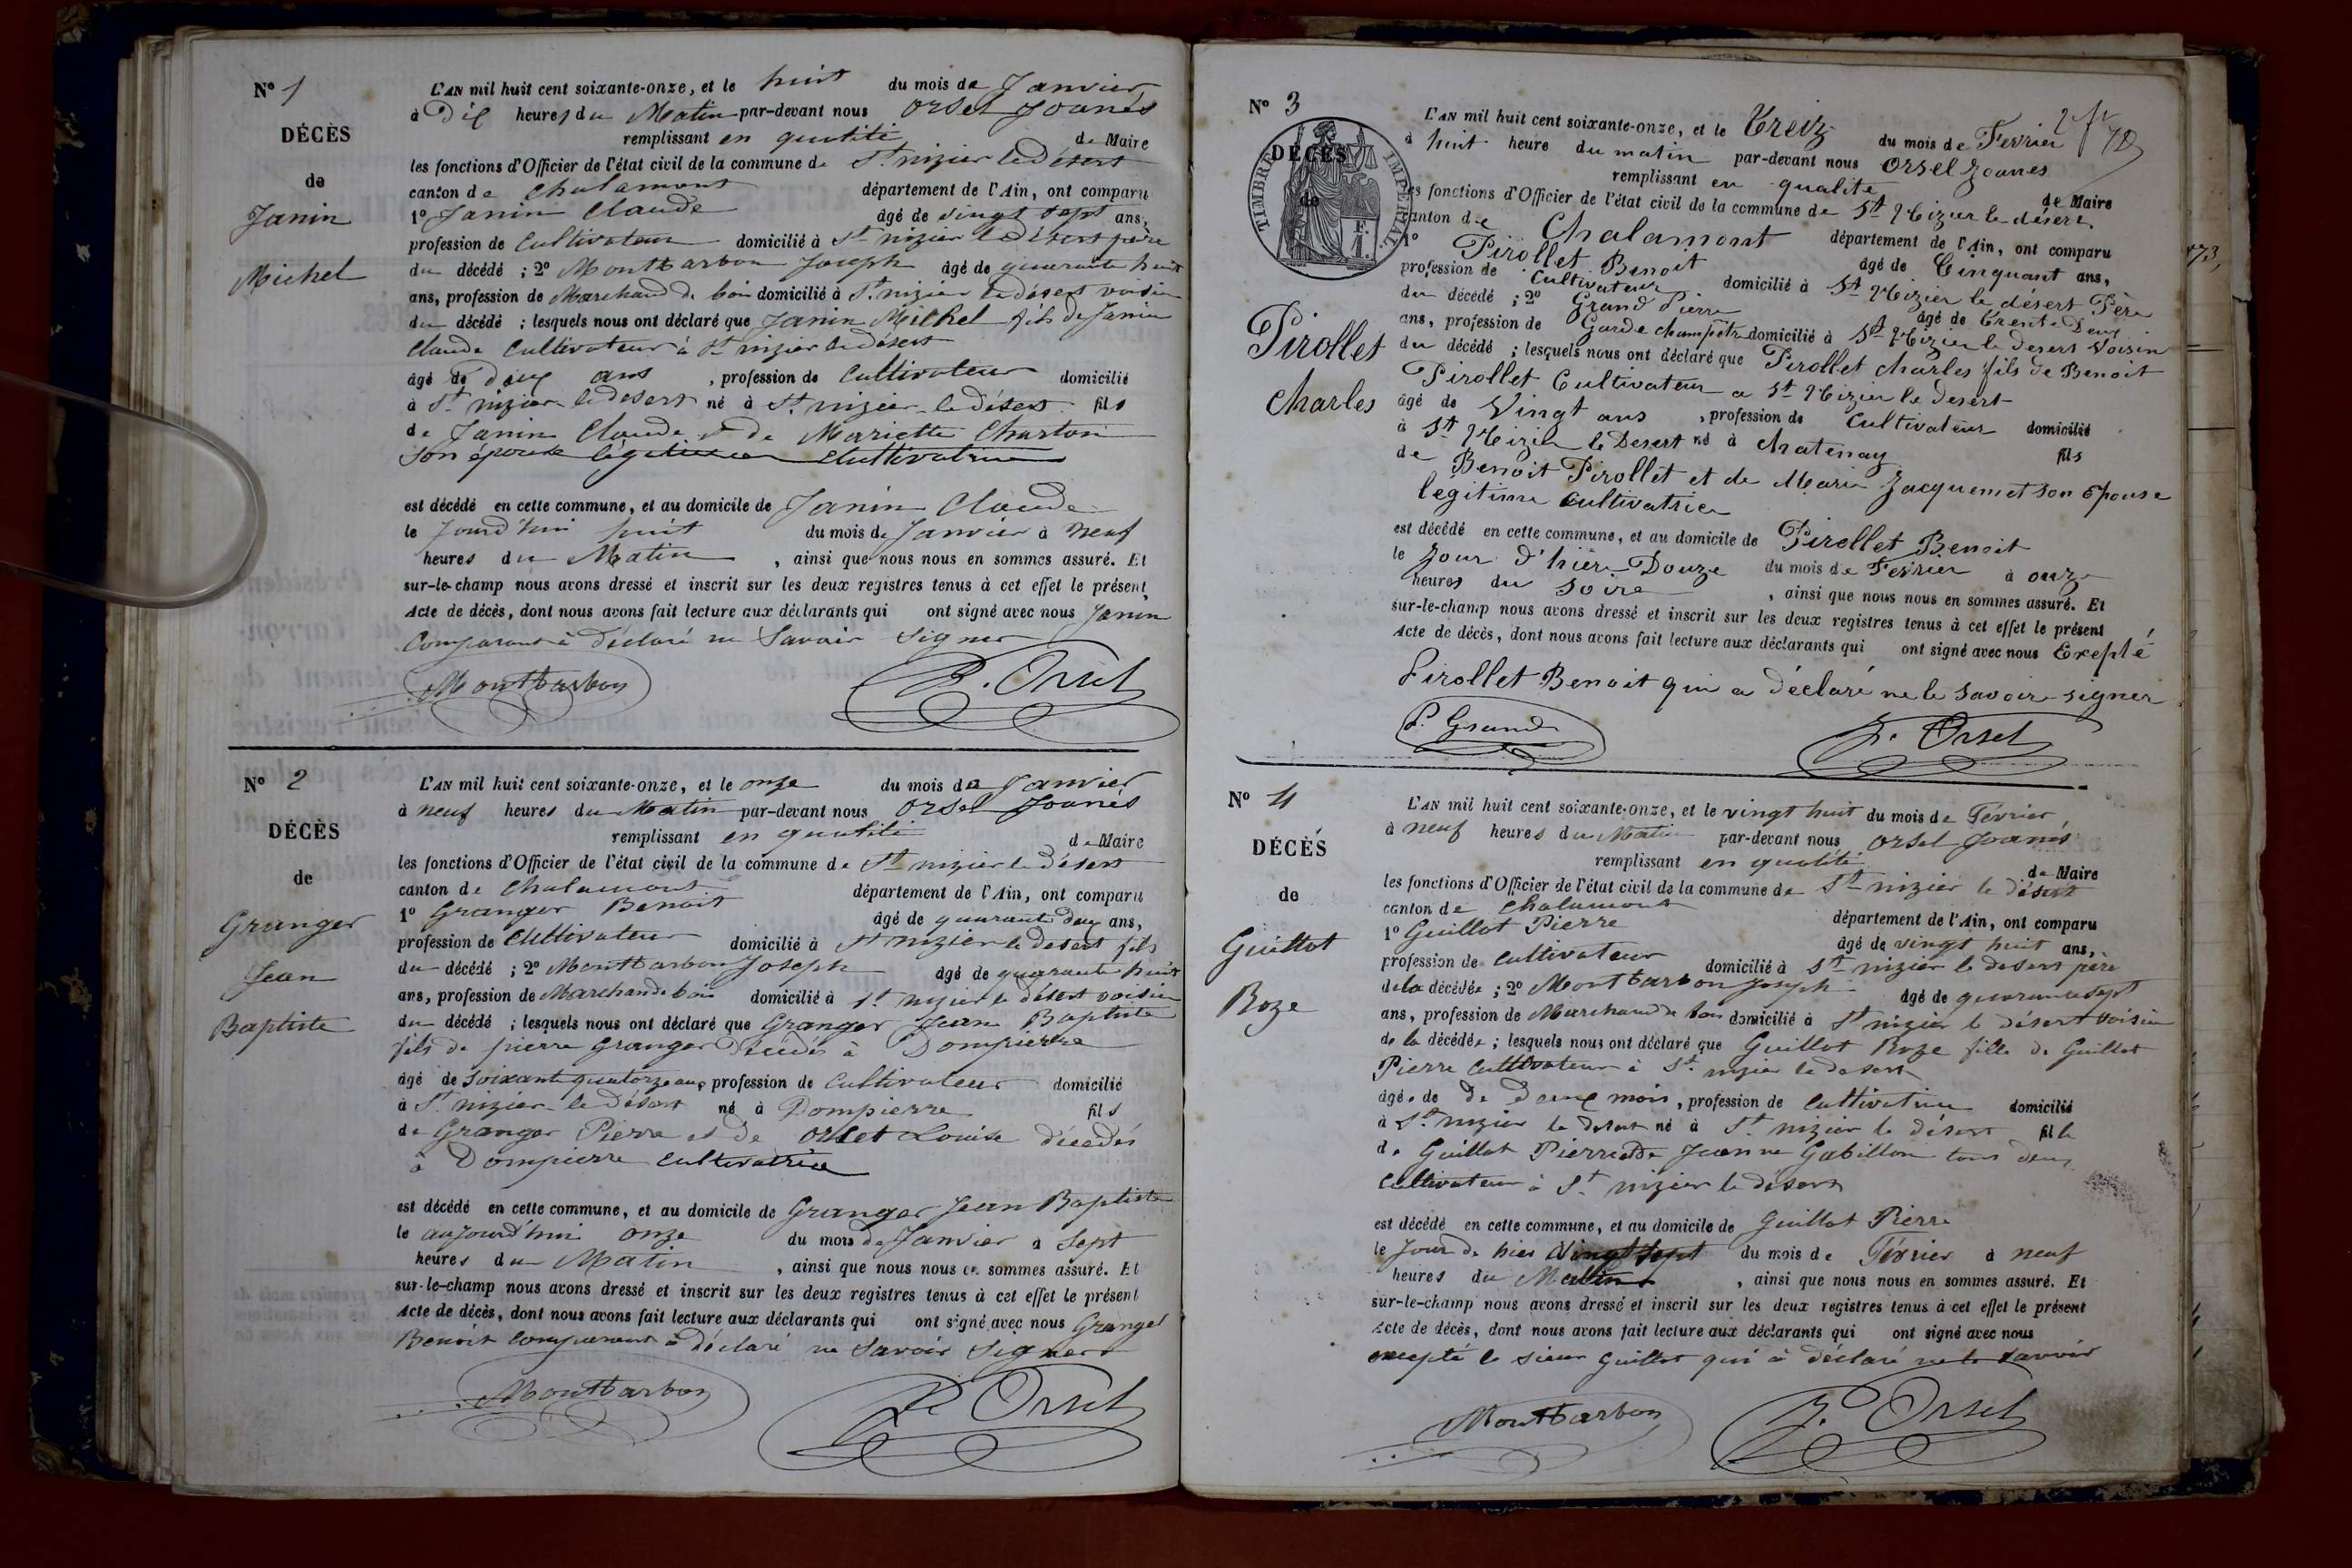 N° 1
DÉCÈS
de
Janin
Michel
L'AN mil huit cent soixante-onze, et le huit du mois de Janvier
à Dix heures du Matin par-devant nous Orsel Joanés
remplissant en qualité de Maire
les fonctions d'Officier de l'état civil de la commune de St nizier le désert
canton de Chalamont département de l'Ain, ont comparu
1° Janin Claude âgé de vingt sept ans,
profession de Cultivateur domicilié à St nizier le désert père
du décédé ; 2° Montbarbon Joseph âgé de quarante huit
ans, profession de Marchand de bois domicilié à St nizier le désert voisin
du décédé ; lesquels nous ont déclaré que Janin Michel fils de Janin
Claude Cultivateur à St nizier le désert
âgé de deux ans , profession de Cultivateur domicilié
à St nizier le desert né à St nizier le désert fils
de Janin Claude et de Mariette Charton
son épouse légitime Cultivatrice
est décédé en cette commune, et au domicile de Janin Claude
le Jourd'hui huit du mois de Janvier à neuf
heures du Matin , ainsi que nous nous en sommes assuré. Et
sur-le-champ nous avons dressé et inscrit sur les deux registres tenus à cet effet le présent
Acte de décès, dont nous avons fait lecture aux déclarants qui ont signé avec nous Janin
Comparant à déclaré ne Savoir Signer
Montbarbon J. Orsel
N° 2
DÉCÈS
de
Granger
Jean
Baptiste
L'AN mil huit cent soixante-onze, et le onze du mois de Janvier
à neuf heures du Matin par-devant nous Orsel Joanés
remplissant en qualité de Maire
les fonctions d'Officier de l'état civil de la commune de St nizier le désert
canton de Chalamont département de l'Ain, ont comparu
1° Granger Benoit âgé de quarante deux ans,
profession de Cultivateur domicilié à St nizier le desert fils
du décédé ; 2° Montbarbon Joseph âgé de quarante huit
ans, profession de Marchand de bois domicilié à St nizier le désert voisin
du décédé ; lesquels nous ont déclaré que Granger Jean Baptiste
fils de pierre Granger Décédés à Dompierre
âgé de soixante quatorze ans profession de Cultivateur domicilié
à St nizier le Désert né à Dompierre fils
de Granger Pierre et de Orset Louise décédés
à Dompierre Cultivatrice
est décédé en cette commune, et au domicile de Granger Jean Baptiste
le aujourd'hui onze du mois de Janvier à Sept
heures du Matin , ainsi que nous nous en sommes assuré. Et
sur-le-champ nous avons dressé et inscrit sur les deux registres tenus à cet effet le présent
Acte de décès, dont nous avons fait lecture aux déclarants qui ont signé avec nous Granger
Benoit Comparant à déclaré ne Savoir Signer
Montbarbon J. Orsel
N° 3
TIMBRE IMPÉRIAL
DÉCÈS
de
Pirollet
Charles
L'AN mil huit cent soixante-onze, et le Treiz du mois de Fevrier
à huit heure du matin par-devant nous Orsel Joanes
remplissant en qualite de Maire
les fonctions d'Officier de l'état civil de la commune de St Nizier le désert
canton de Chalamont département de l'Ain, ont comparu
1° Pirollet Benoit âgé de Cinquant ans,
profession de Cultivateur domicilié à St Nizier le désert Père
du décédé ; 2° Grand Pierre âgé de trente Deux
ans, profession de Garde champetre domicilié à St Nizier le desert Voisin
du décédé ; lesquels nous ont déclaré que Pirollet charles fils de Benoit
Pirollet Cultivateur a St Nizier le Desert
âgé de Vingt ans , profession de Cultivateur domicilié
à St Nizier le Desert né à Chatenay fils
de Benoit Pirollet et de Marie Jacquemet son Epouse
legitime Cultivatrice
est décédé en cette commune, et au domicile de Pirollet Benoit
le Jour d'hier Douze du mois de Fevrier à onze
heures du soire , ainsi que nous nous en sommes assuré. Et
sur-le-champ nous avons dressé et inscrit sur les deux registres tenus à cet effet le présent
Acte de décès, dont nous avons fait lecture aux déclarants qui ont signé avec nous Exepté
Pirollet Benoit qui a déclaré ne le savoir signer
P. Grand J. Orsel
N° 4
DÉCÈS
de
Guillot
Roze
L'AN mil huit cent soixante-onze, et le vingt huit du mois de Février
à neuf heures du Matin par-devant nous Orsel Joanés
remplissant en qualité de Maire
les fonctions d'Officier de l'état civil de la commune de St nizier le désert
canton de Chalamont département de l'Ain, ont comparu
1° Guillot Pierre âgé de vingt huit ans,
profession de Cultivateur domicilié à St nizier le desert père
de la décédée ; 2° Montbarbon Joseph âgé de quarante sept
ans, profession de Marchand de bois domicilié à St nizier le désert voisin
de la décédée ; lesquels nous ont déclaré que Guillot Roze fille de Guillot
Pierre Cultivateur à St nizier le desert
âgée de De Deux mois , profession de Cultivatrice domicilié
à St nizier le desert né à St nizier le désert fille
de Guillot Pierre et de Jeanne Gabillon tous deux
Cultivateur à St nizier le désert
est décédé en cette commune, et au domicile de Guillot Pierre
le Jour de hier vingt sept du mois de Février à neuf
heures du Matin , ainsi que nous nous en sommes assuré. Et
sur-le-champ nous avons dressé et inscrit sur les deux registres tenus à cet effet le présent
Acte de décès, dont nous avons fait lecture aux déclarants qui ont signé avec nous
excepté le sieur Guillot qui à déclaré ne le savoir
Montbarbon J. Orsel